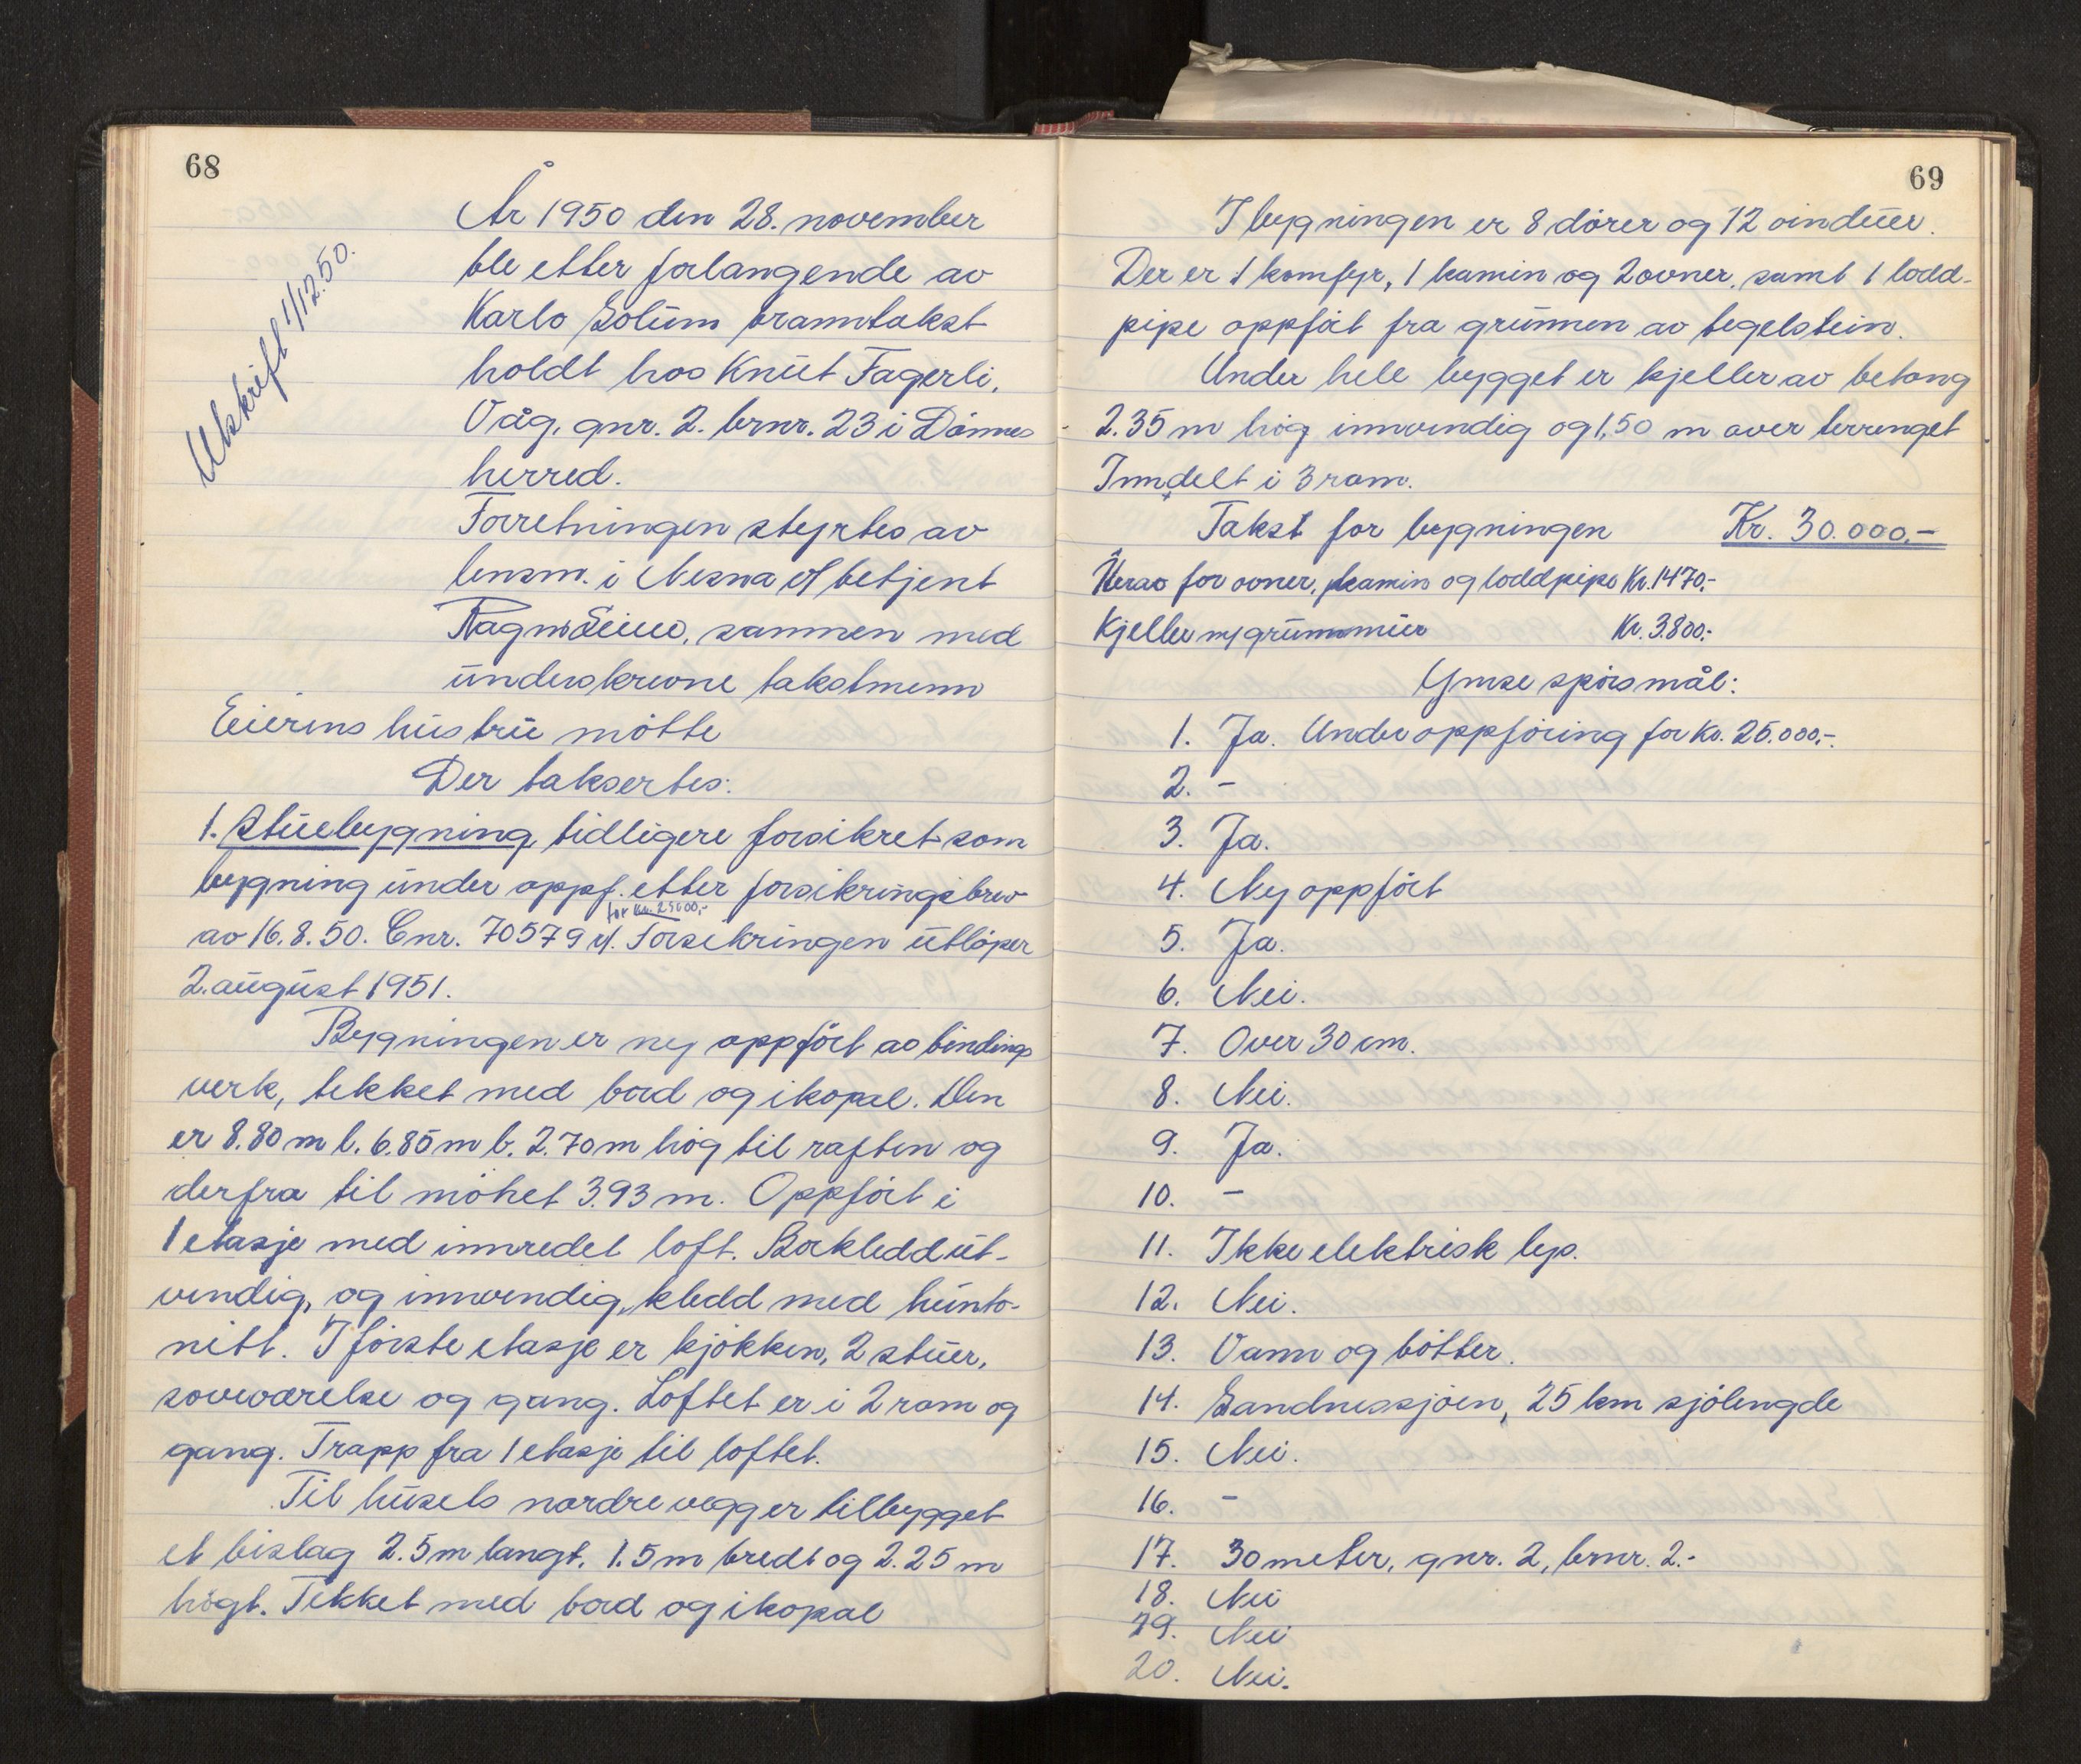 68
Utskrift 1/12.50.
År 1950 den 28. november
ble etter forlangende av
Karlo Solum branntakst
holdt hos Knut Fagerli,
Våg, gnr. 2. brnr. 23 i Dønnes
herred.
Forretningen styrtes av
lensm. i Nesna v/ betjent
sammen med
underskrevne takstmenn
Eierens hustru møtte
Der taksertes:
1. Stuebygning, tidligere forsikret som
bygning under oppf. etter forsikringsbrev
for kr. 25000,-
av 16.8.50. Cnr. 70579 Forsikringen utløper
2. august 1951.
Bygningen er ny oppført av bindings
verk, tekket med bord og ikopal. Den
er 8.80 m l. 6.85 m b. 2.70 m høg til raften og
derfra til mønet 3.93 m. Oppført i
1 etasje med innredet loft. Bordkledd ut-
vendig, og innvendig kledd med hunto-
nitt. I første etasje er kjøkken, 2 stuer,
soveværelse og gang. Loftet er i 2 rom og
gang. Trapp fra 1 etasje til loftet.
Til husets nordre vegg er tilbygget
et bislag 2.5 m langt, 1.5 m bredt og 2.25 m
høgt. Tekket med bord og ikopal
69
I bygningen er 8 dører og 12 vinduer.
Der er 1 komfyr, 1 kamin og 2 ovner, samt 1 lodd-
pipe oppført fra grunnen av tegelstein.
Under hele bygget er kjeller av betong
2.35 m høg innvendig og 1,50 m over terrenget
Inndelt i 3 rom.
Takst for bygningen Kr. 30.000.-
Herav for ovner, kamin og loddpipe Kr. 1470.-
Kjeller m/ grunnmur Kr. 3.800.-
Ymse spørsmål:
1. Ja. Under oppføring for Kr. 25.000,-.
2. -
3. Ja.
4. Ny oppført
5. Ja.
6. Nei.
7. Over 30 cm.
8. Nei.
9. Ja.
10. -
11. Ikke elektrisk lys.
12. Nei.
13. Vann og bøtter.
14. Sandnessjøen, 25 km sjølengde
15. Nei.
16. -
17. 30 meter, gnr. 2, brnr. 2.-
18. Nei
19. Nei
20. Nei.